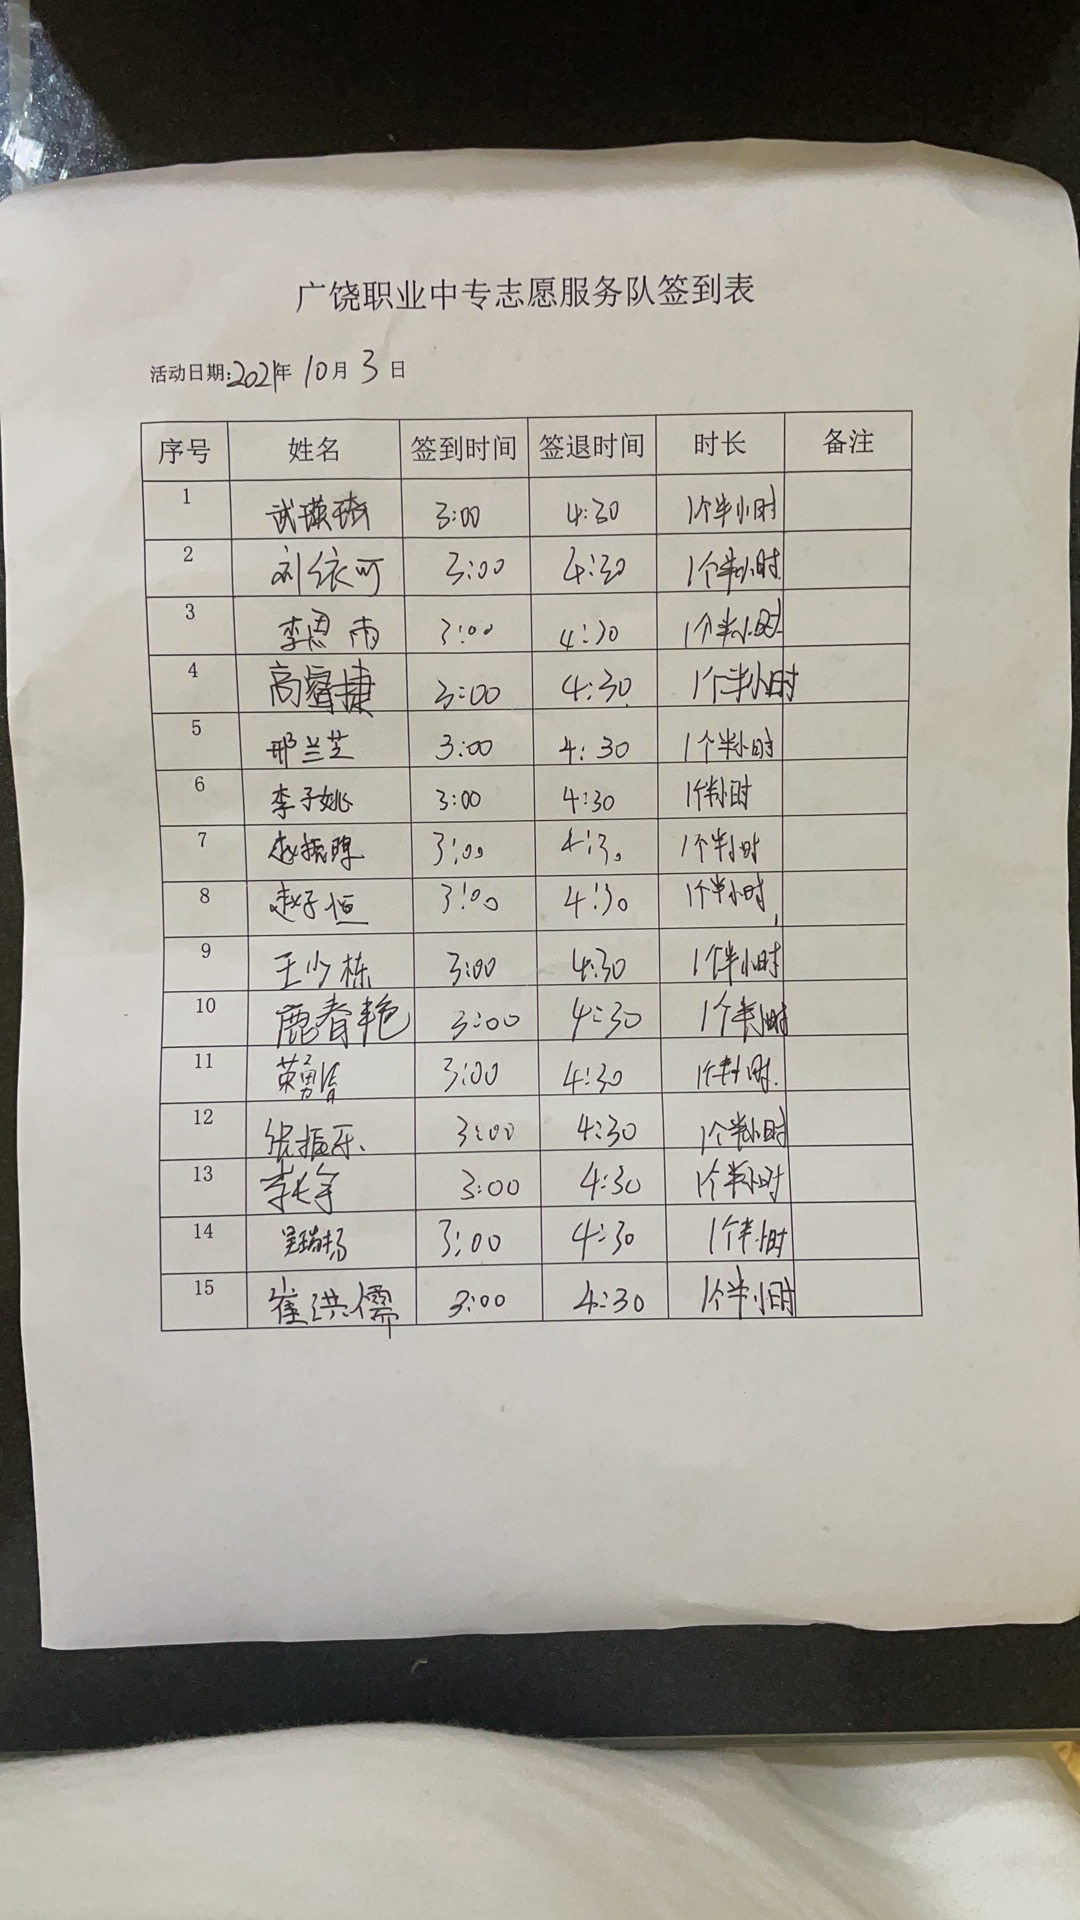 广饶职业中专志愿服务队签到表
活动日期:2021年 10月 3 日
序号 姓名 签到时间 签退时间 时长 备注
1 武瑛琦 3:00 4:30 1个半小时
2 刘依可 3:00 4:30 1个半小时
3 李思雨 3:00 4:30 1个半小时
4 高睿捷 3:00 4:30 1个半小时
5 邢兰芝 3:00 4:30 1个半小时
6 李子姚 3:00 4:30 1个半小时
7 赵振 3:00 4:30 1个半小时
8 赵子恒 3:00 4:30 1个半小时
9 王少栋 3:00 4:30 1个半小时
10 鹿春艳 3:00 4:30 1个半小时
11 英勇 3:00 4:30 1个半小时
12 张振 3:00 4:30 1个半小时
13 李 3:00 4:30 1个半小时
14 吴瑞扬 3:00 4:30 1个半小时
15 崔洪儒 3:00 4:30 1个半小时